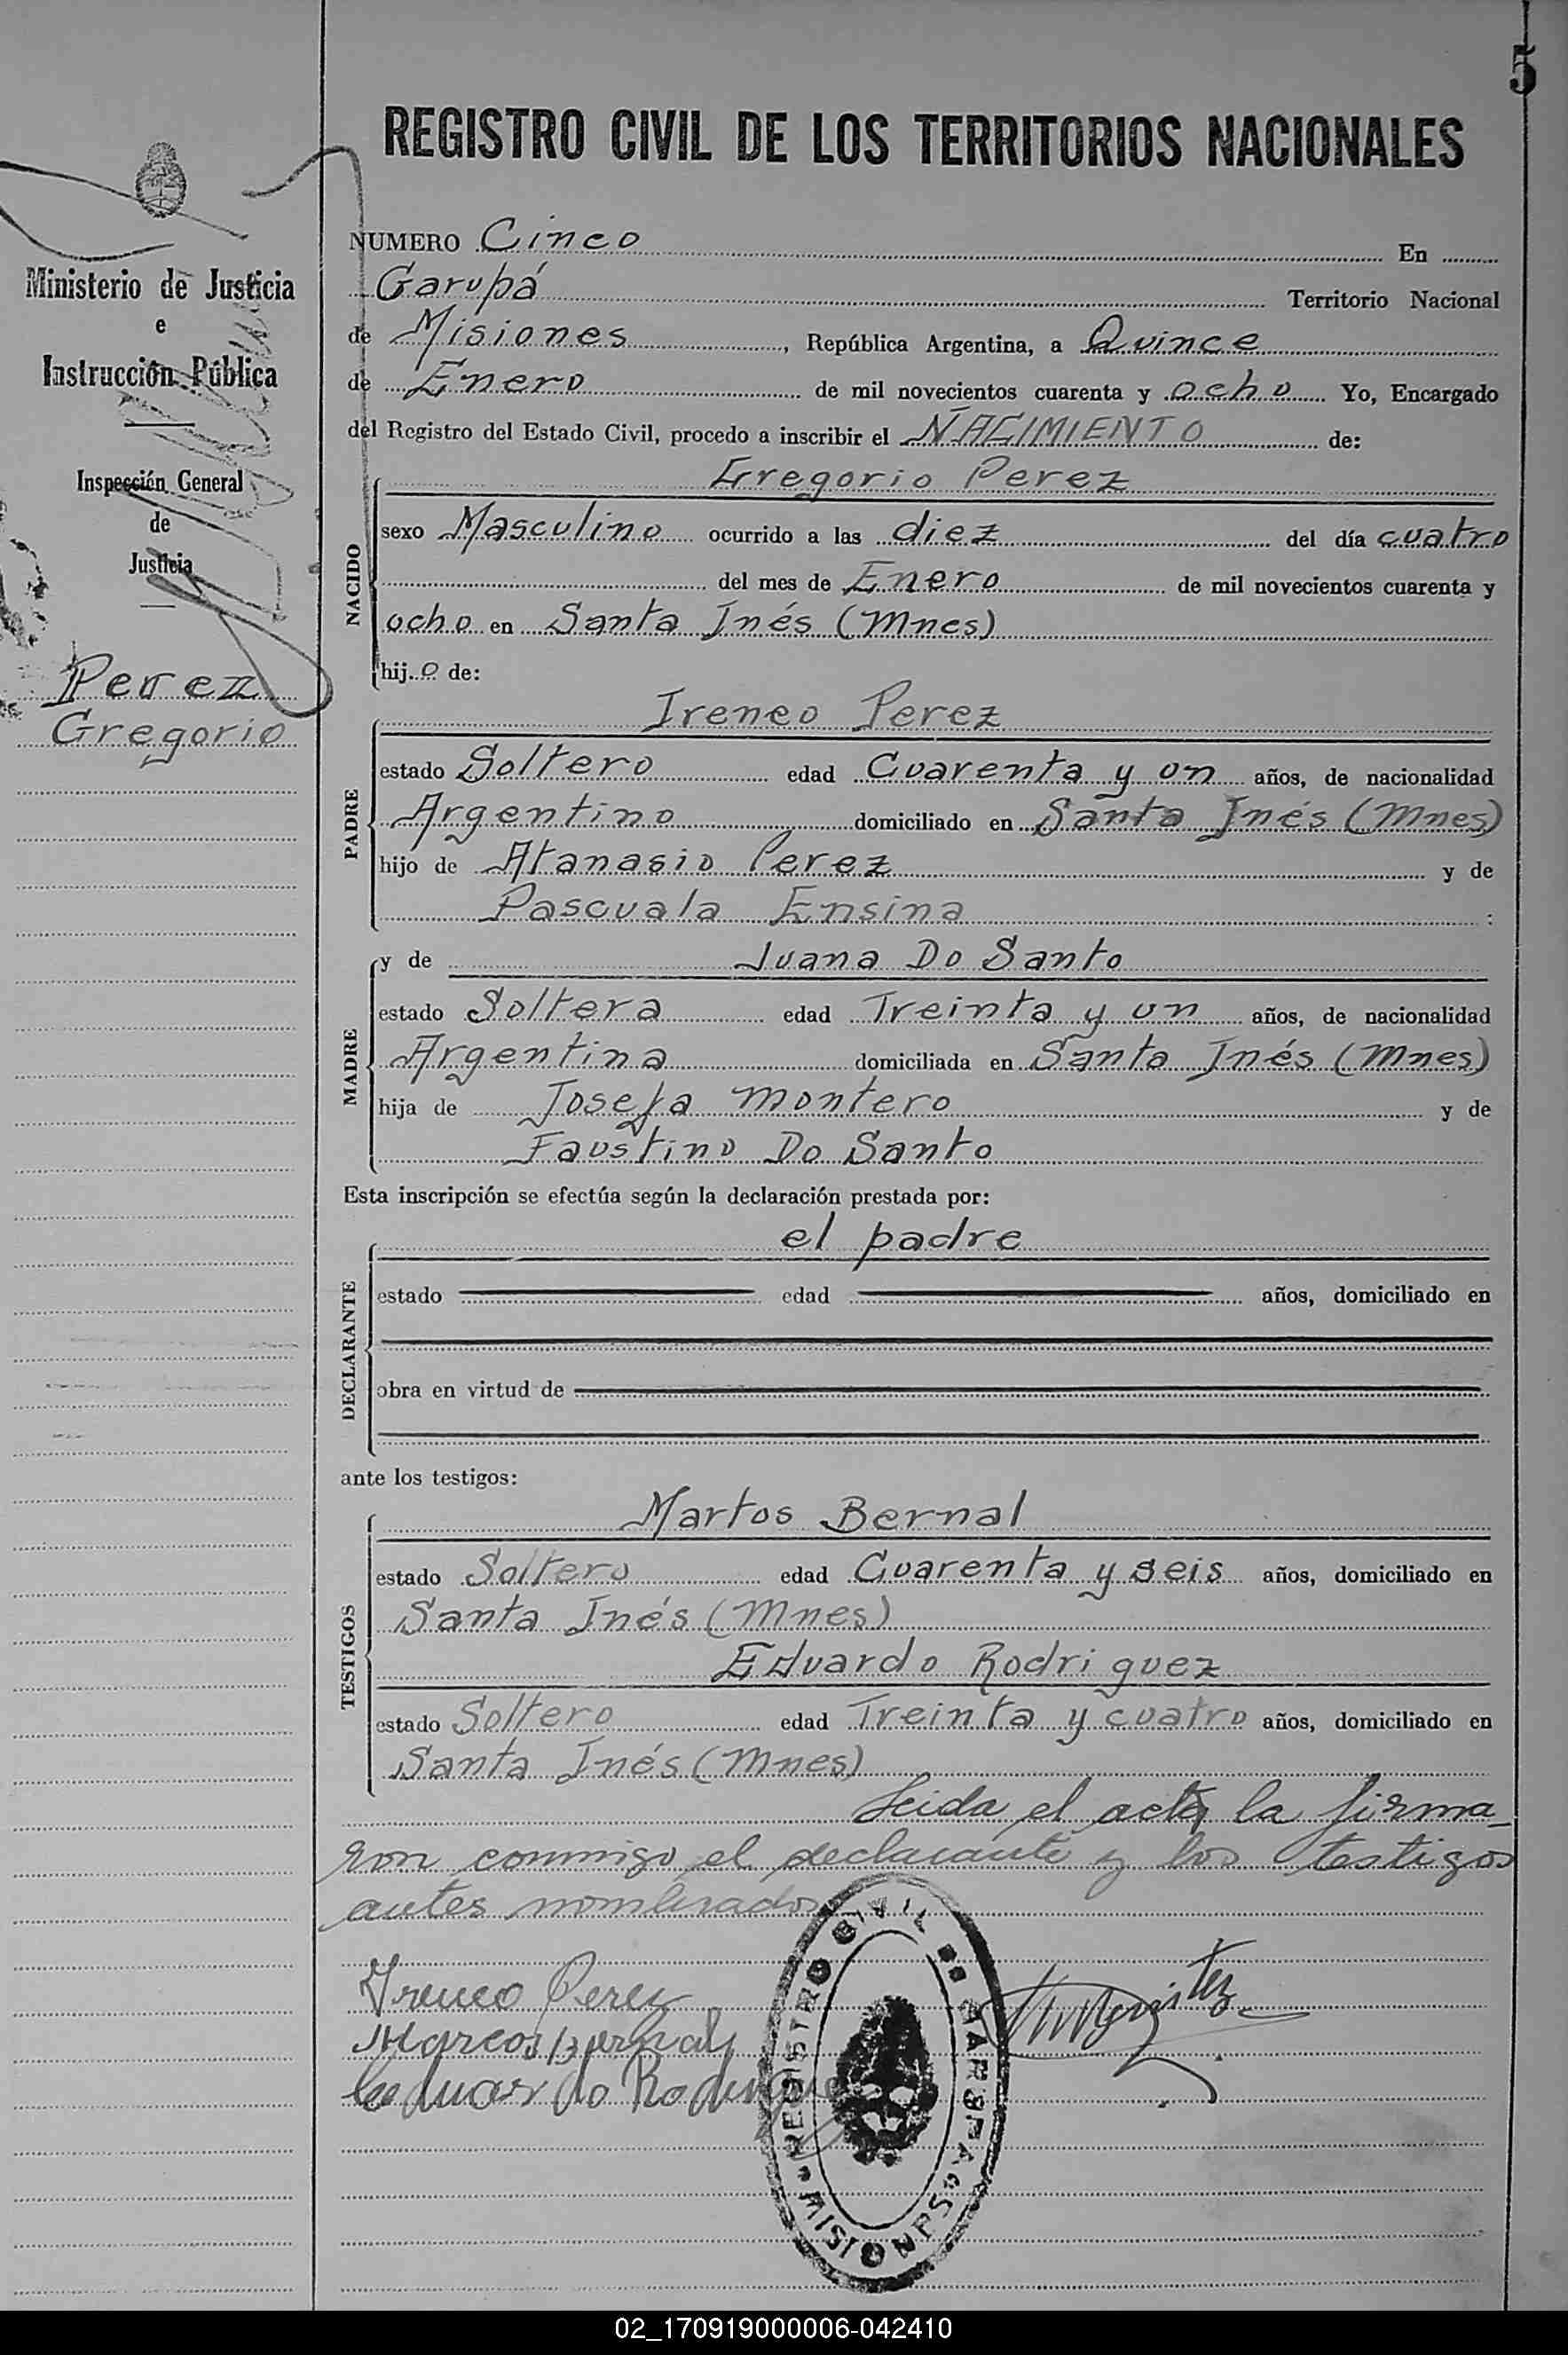 5
REGISTRO CIVIL DE LOS TERRITORIOS NACIONALES
Ministerio de Justicia
e
Instrucción Pública
Inspección General
de
Justicia
Perez
Gregorio
NUMERO Cinco En
Garupá Territorio Nacional
de Misiones, República Argentina, a Quince
de Enero de mil novecientos cuarenta y ocho Yo, Encargado
del Registro del Estado Civil, procedo a inscribir el NACIMIENTO de:
NACIDO
Gregorio Perez
sexo Masculino ocurrido a las diez del día cuatro
del mes de Enero de mil novecientos cuarenta y
ocho en Santa Inés (Mnes)
hijo de:
PADRE
Ireneo Perez
estado Soltero edad Cuarenta y un años, de nacionalidad
Argentino domiciliado en Santa Inés (Mnes)
hijo de Atanasio Perez y de
Pascuala Ensina :
MADRE
y de Juana Do Santo
estado Soltera edad Treinta y un años, de nacionalidad
Argentina domiciliada en Santa Inés (Mnes)
hija de Josefa Montero y de
Faustino Do Santo
Esta inscripción se efectúa según la declaración prestada por:
DECLARANTE
el padre
estado edad años, domiciliado en
obra en virtud de
ante los testigos:
TESTIGOS
Martos Bernal
estado Soltero edad Cuarenta y seis años, domiciliado en
Santa Inés (Mnes)
Eduardo Rodriguez
estado Soltero edad Treinta y cuatro años, domiciliado en
Santa Inés (Mnes)
Leida el acta la firma-
ron conmigo el declarante y los testigos
antes nombrados
Ireneo Perez
Marcos Bernal
Eduardo Rodrigue
REGISTRO CIVIL
MISIONES
02_170919000006-042410